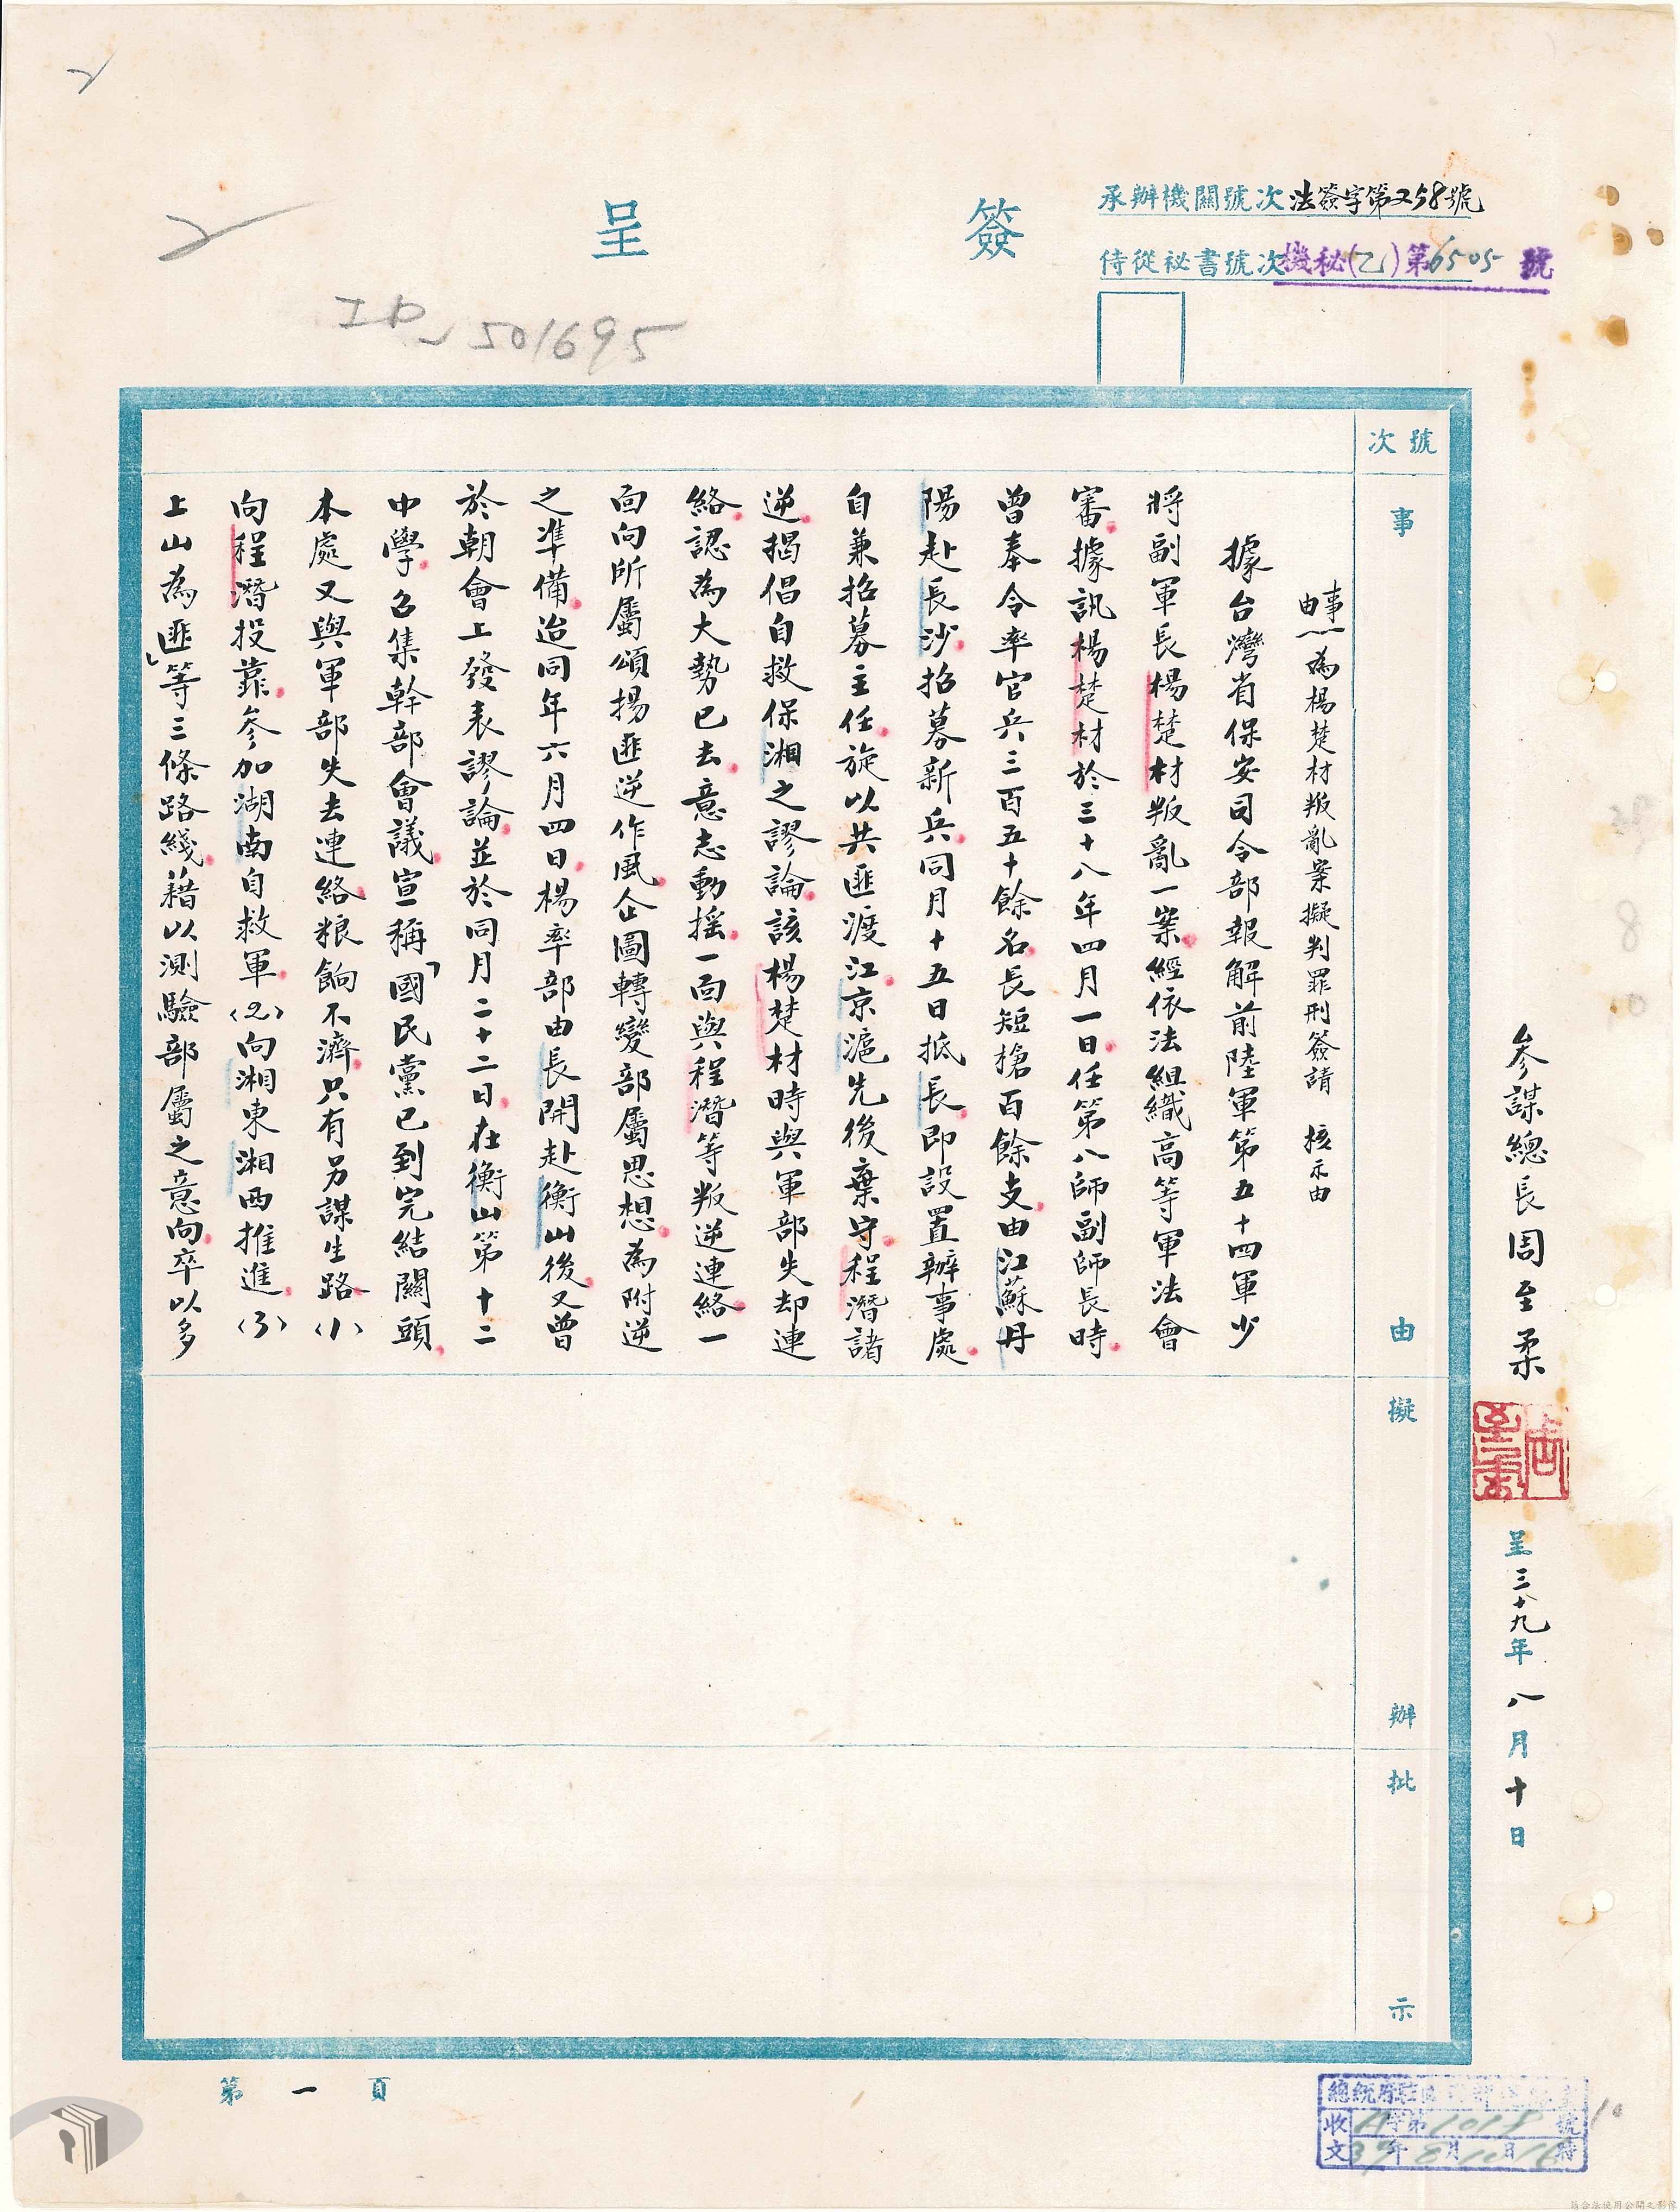 簽呈
承辦機關號次法簽字第258號
侍從祕書號次機秘(乙)第6505號
2
2
ID 501695
參謀總長周至柔
呈三十九年八月十日
號次
事由
擬辦
批示
事由:為楊楚材叛亂案擬判罪刑簽請 核示由
據台灣省保安司令部報解前陸軍第五十四軍少
將副軍長楊楚材叛亂一案經依法組織高等軍法會
審據訊楊楚材於三十八年四月一日任第八師副師長時
曾奉令率官兵三百五十餘名長短槍百餘支由江蘇丹
陽赴長沙招募新兵同月十五日抵長即設置辦事處
自兼招募主任旋以共匪渡江京滬先後棄守程潛諸
逆揭倡自救保湘之謬論該楊楚材時與軍部失却連
絡認為大勢已去意志動搖一面與程潛等叛逆連絡一
面向所屬頌揚匪逆作風企圖轉變部屬思想為附逆
之準備迨同年六月四日楊率部由長開赴衡山後又曾
於朝會上發表謬論並於同月二十二日在衡山第十二
中學召集幹部會議宣稱「國民黨已到完結關頭
本處又與軍部失去連絡粮餉不濟只有另謀生路(1)
向程潛投靠參加湖南自救軍(2)向湘東湘西推進(3)
上山為匪」等三條路綫藉以測驗部屬之意向卒以多
第一頁
收文
字第1018號
39年8月10日16時
10